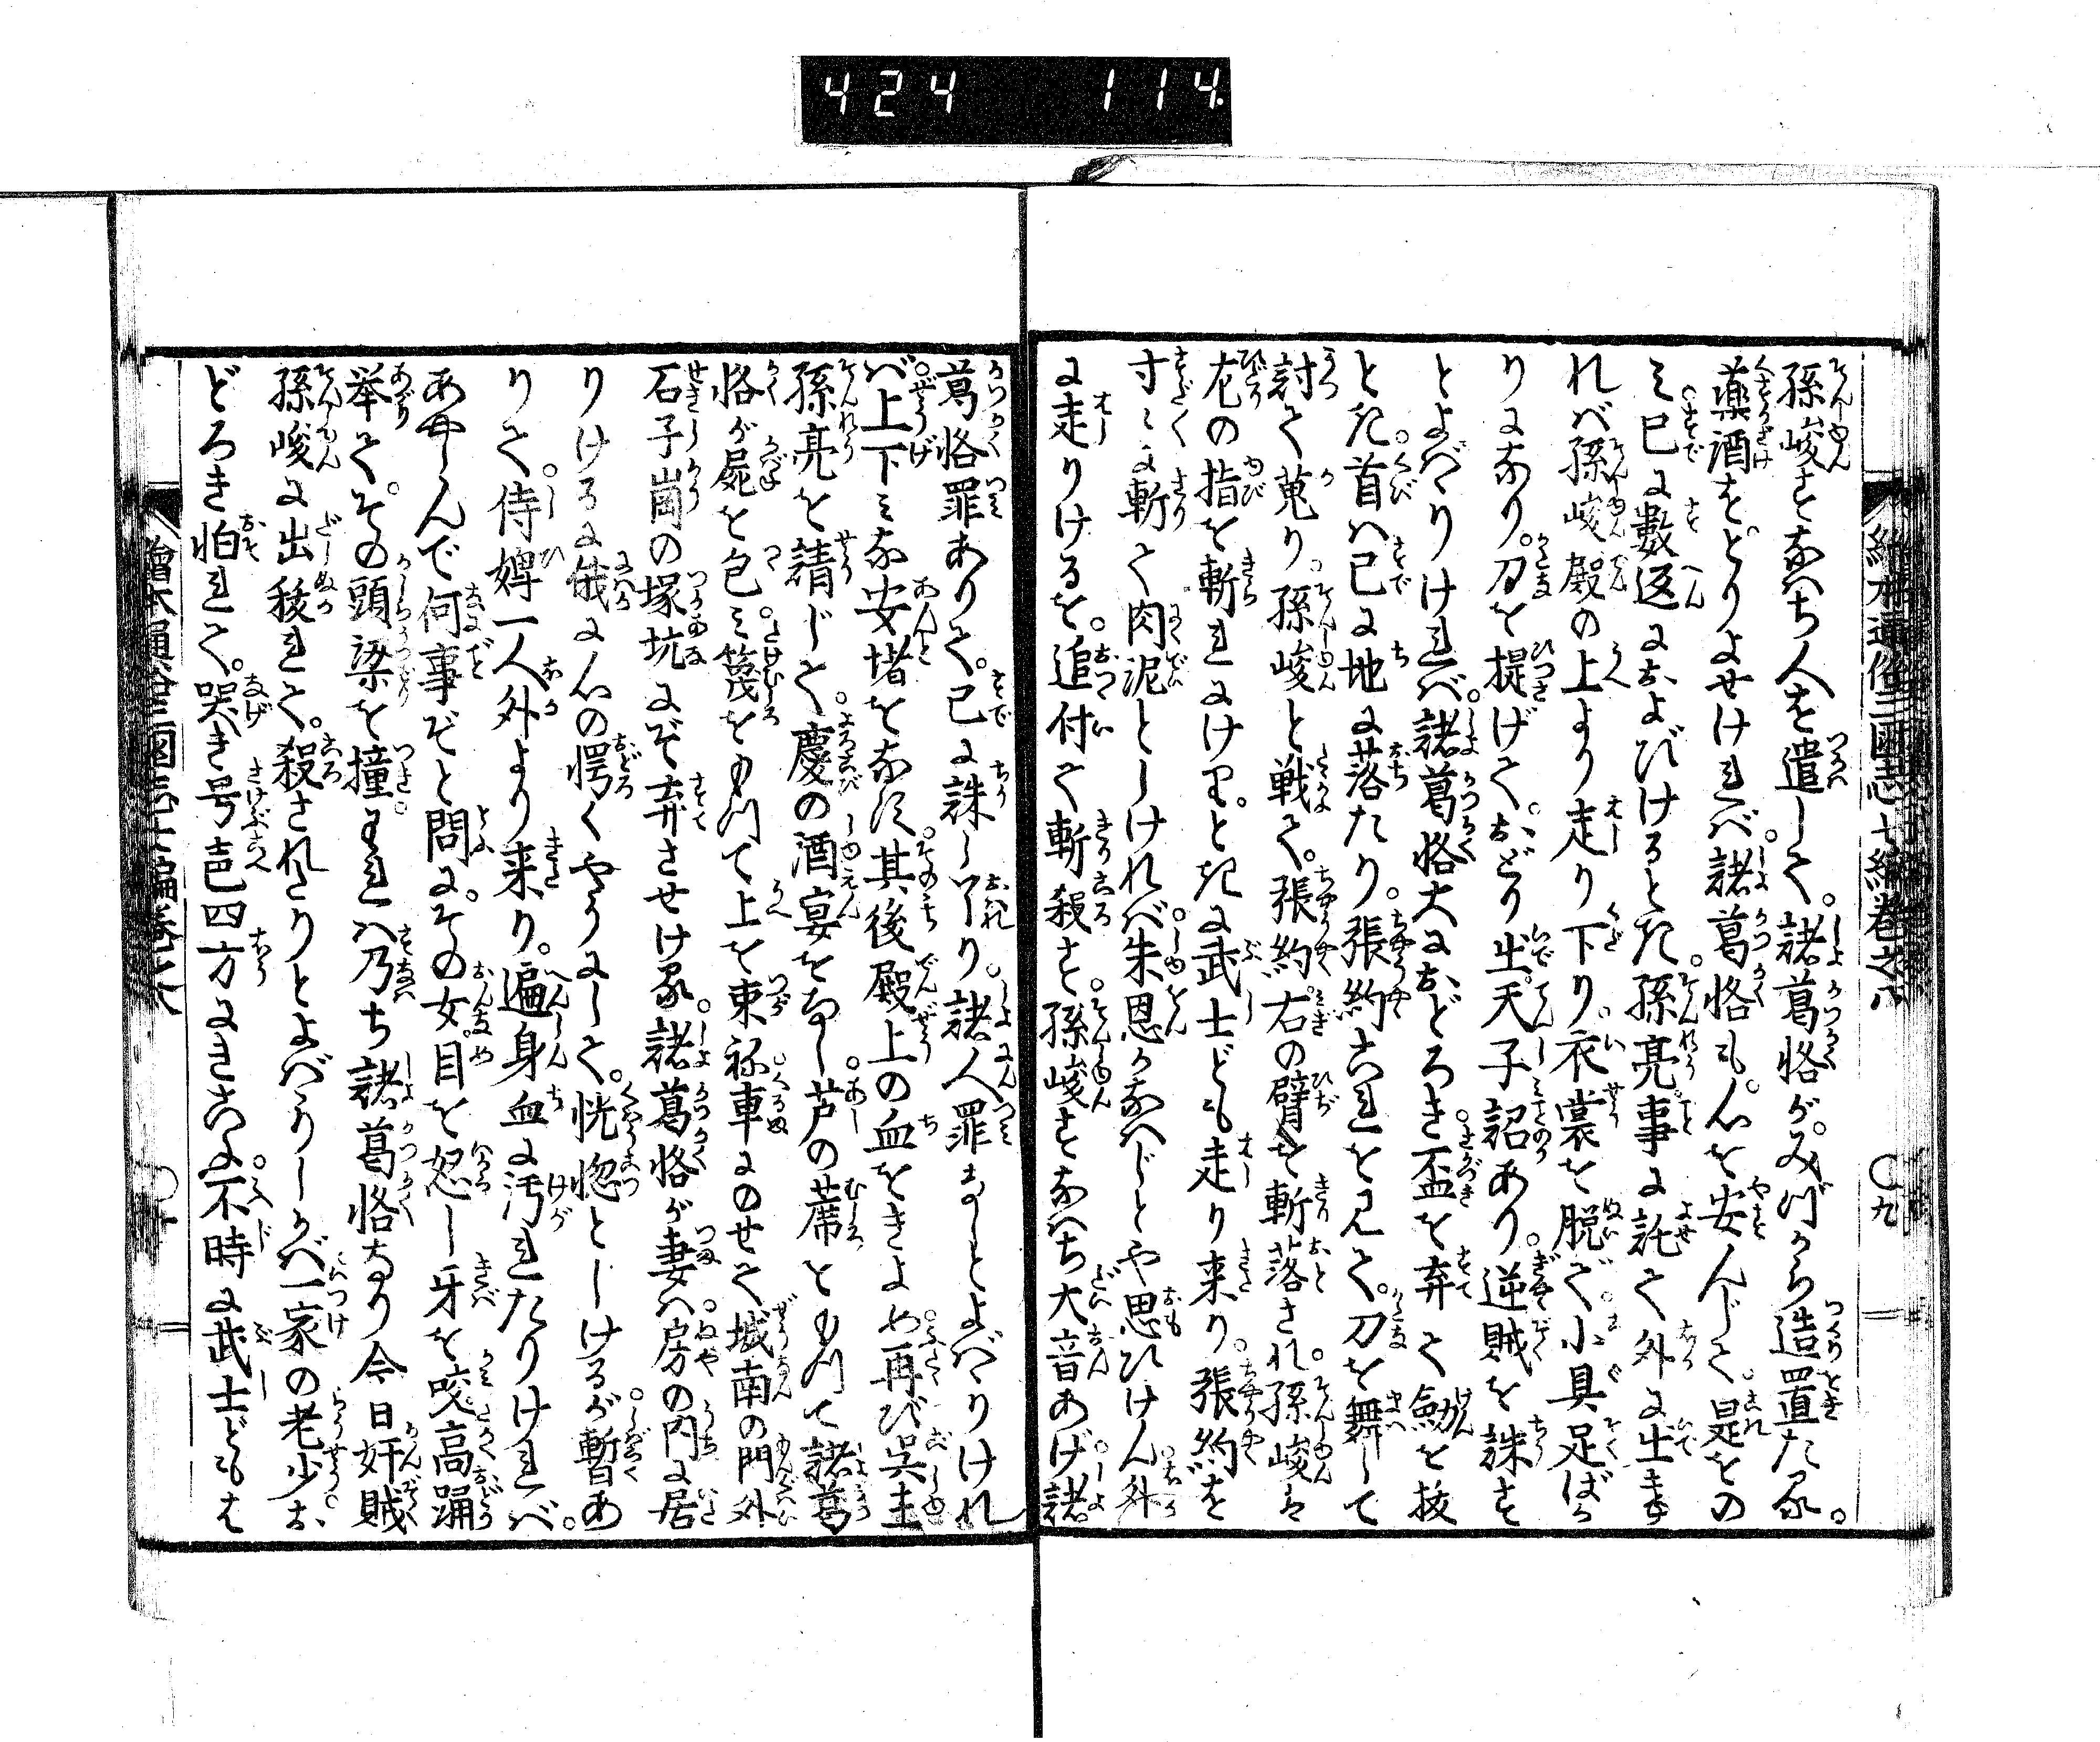 424 114
繪本通俗三國志七編巻之八 〇九
孫峻すなはち人を遣して。諸葛恪が。みづから造置たる。
薬酒を。とりよせければ。諸葛恪も。心を安んじて。是をの
み已に數返におよびけるとき。孫亮。事に託て外に出け
れば孫峻殿の上より走り下り。衣裳を脱ぎ。小具足ばか
りになり。刀を提げて。おどり出。天子詔あり。逆賊を誅す
とよばゝりければ。諸葛恪大におどろき。盃を弃て劔を抜
とき。首は已に地に落たり。張約これを見て。刀を舞して
討て蒐り。孫峻と戦て。張約。右の臂を斬落され。孫峻は
左の指を斬れにけり。ときに武士ども走り来り。張約を
寸々に斬て肉泥としければ。朱恩かなはじとや思ひけん。外
に走りけるを。追付て斬殺す。孫峻すなはち大音あげ。諸
葛恪罪ありて。已に誅し畢り。諸人罪なしとよばゝりけれ
ば。上下みな安堵をなす。其後殿上の血をきよめ。再び呉主
孫亮を請じて。慶の酒宴をなし。芦の蓆をもつて諸葛
恪が屍を包み。篾をもつて上を束ね。車にのせて城南の門外
石子崗の塚坑にぞ弃させける。諸葛恪が妻は。房の内に居
りけるに。俄に心の愕くやうにして。恍惚としけるが。暫あ
りて。侍婢一人外より来り。遍身血に汚れたりければ。
あやしんで何事ぞと問に。その女。目を怒し牙を咬。高踊
挙て。その頭梁を撞。われは乃ち諸葛恪なり今日奸賊
孫峻に出し抜れて。殺されたりとよばゝりしかば。一家の老少お
どろき怕れて。哭き号声四方にきこふ。不時に武士どもは
繪本通俗三國志七編巻之八